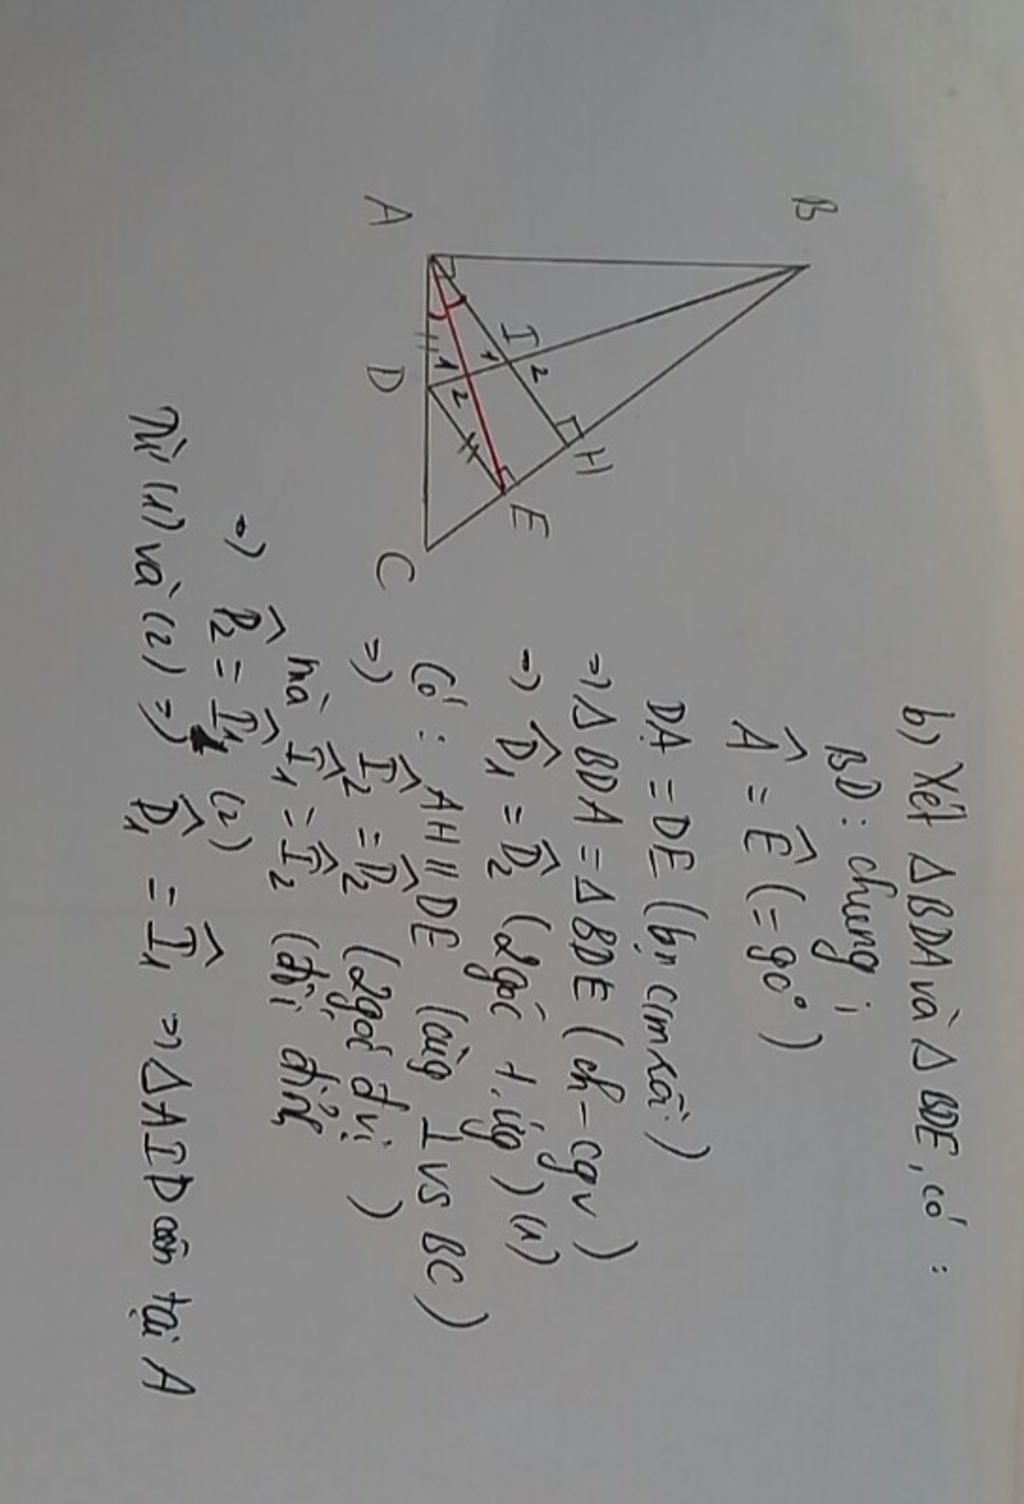 B
A
I
1
2
H
D
1
2
E
C
b) Xét ΔBDA và ΔBDE, có :
BD : chung ;
Â = Ê (= 90°)
DA = DE (bn cm rồi)
=> ΔBDA = ΔBDE (ch - cgv)
=> D̂₁ = D̂₂ (2 góc t.ứg) (1)
Có : AH // DE (cùg ⊥ vs BC)
=> Î₂ = D̂₂ (2 góc đvị)
mà Î₁ = Î₂ (đối đỉnh
=> D̂₂ = Î₁ (2)
Từ (1) và (2) => D̂₁ = Î₁ => ΔAID cân tại A